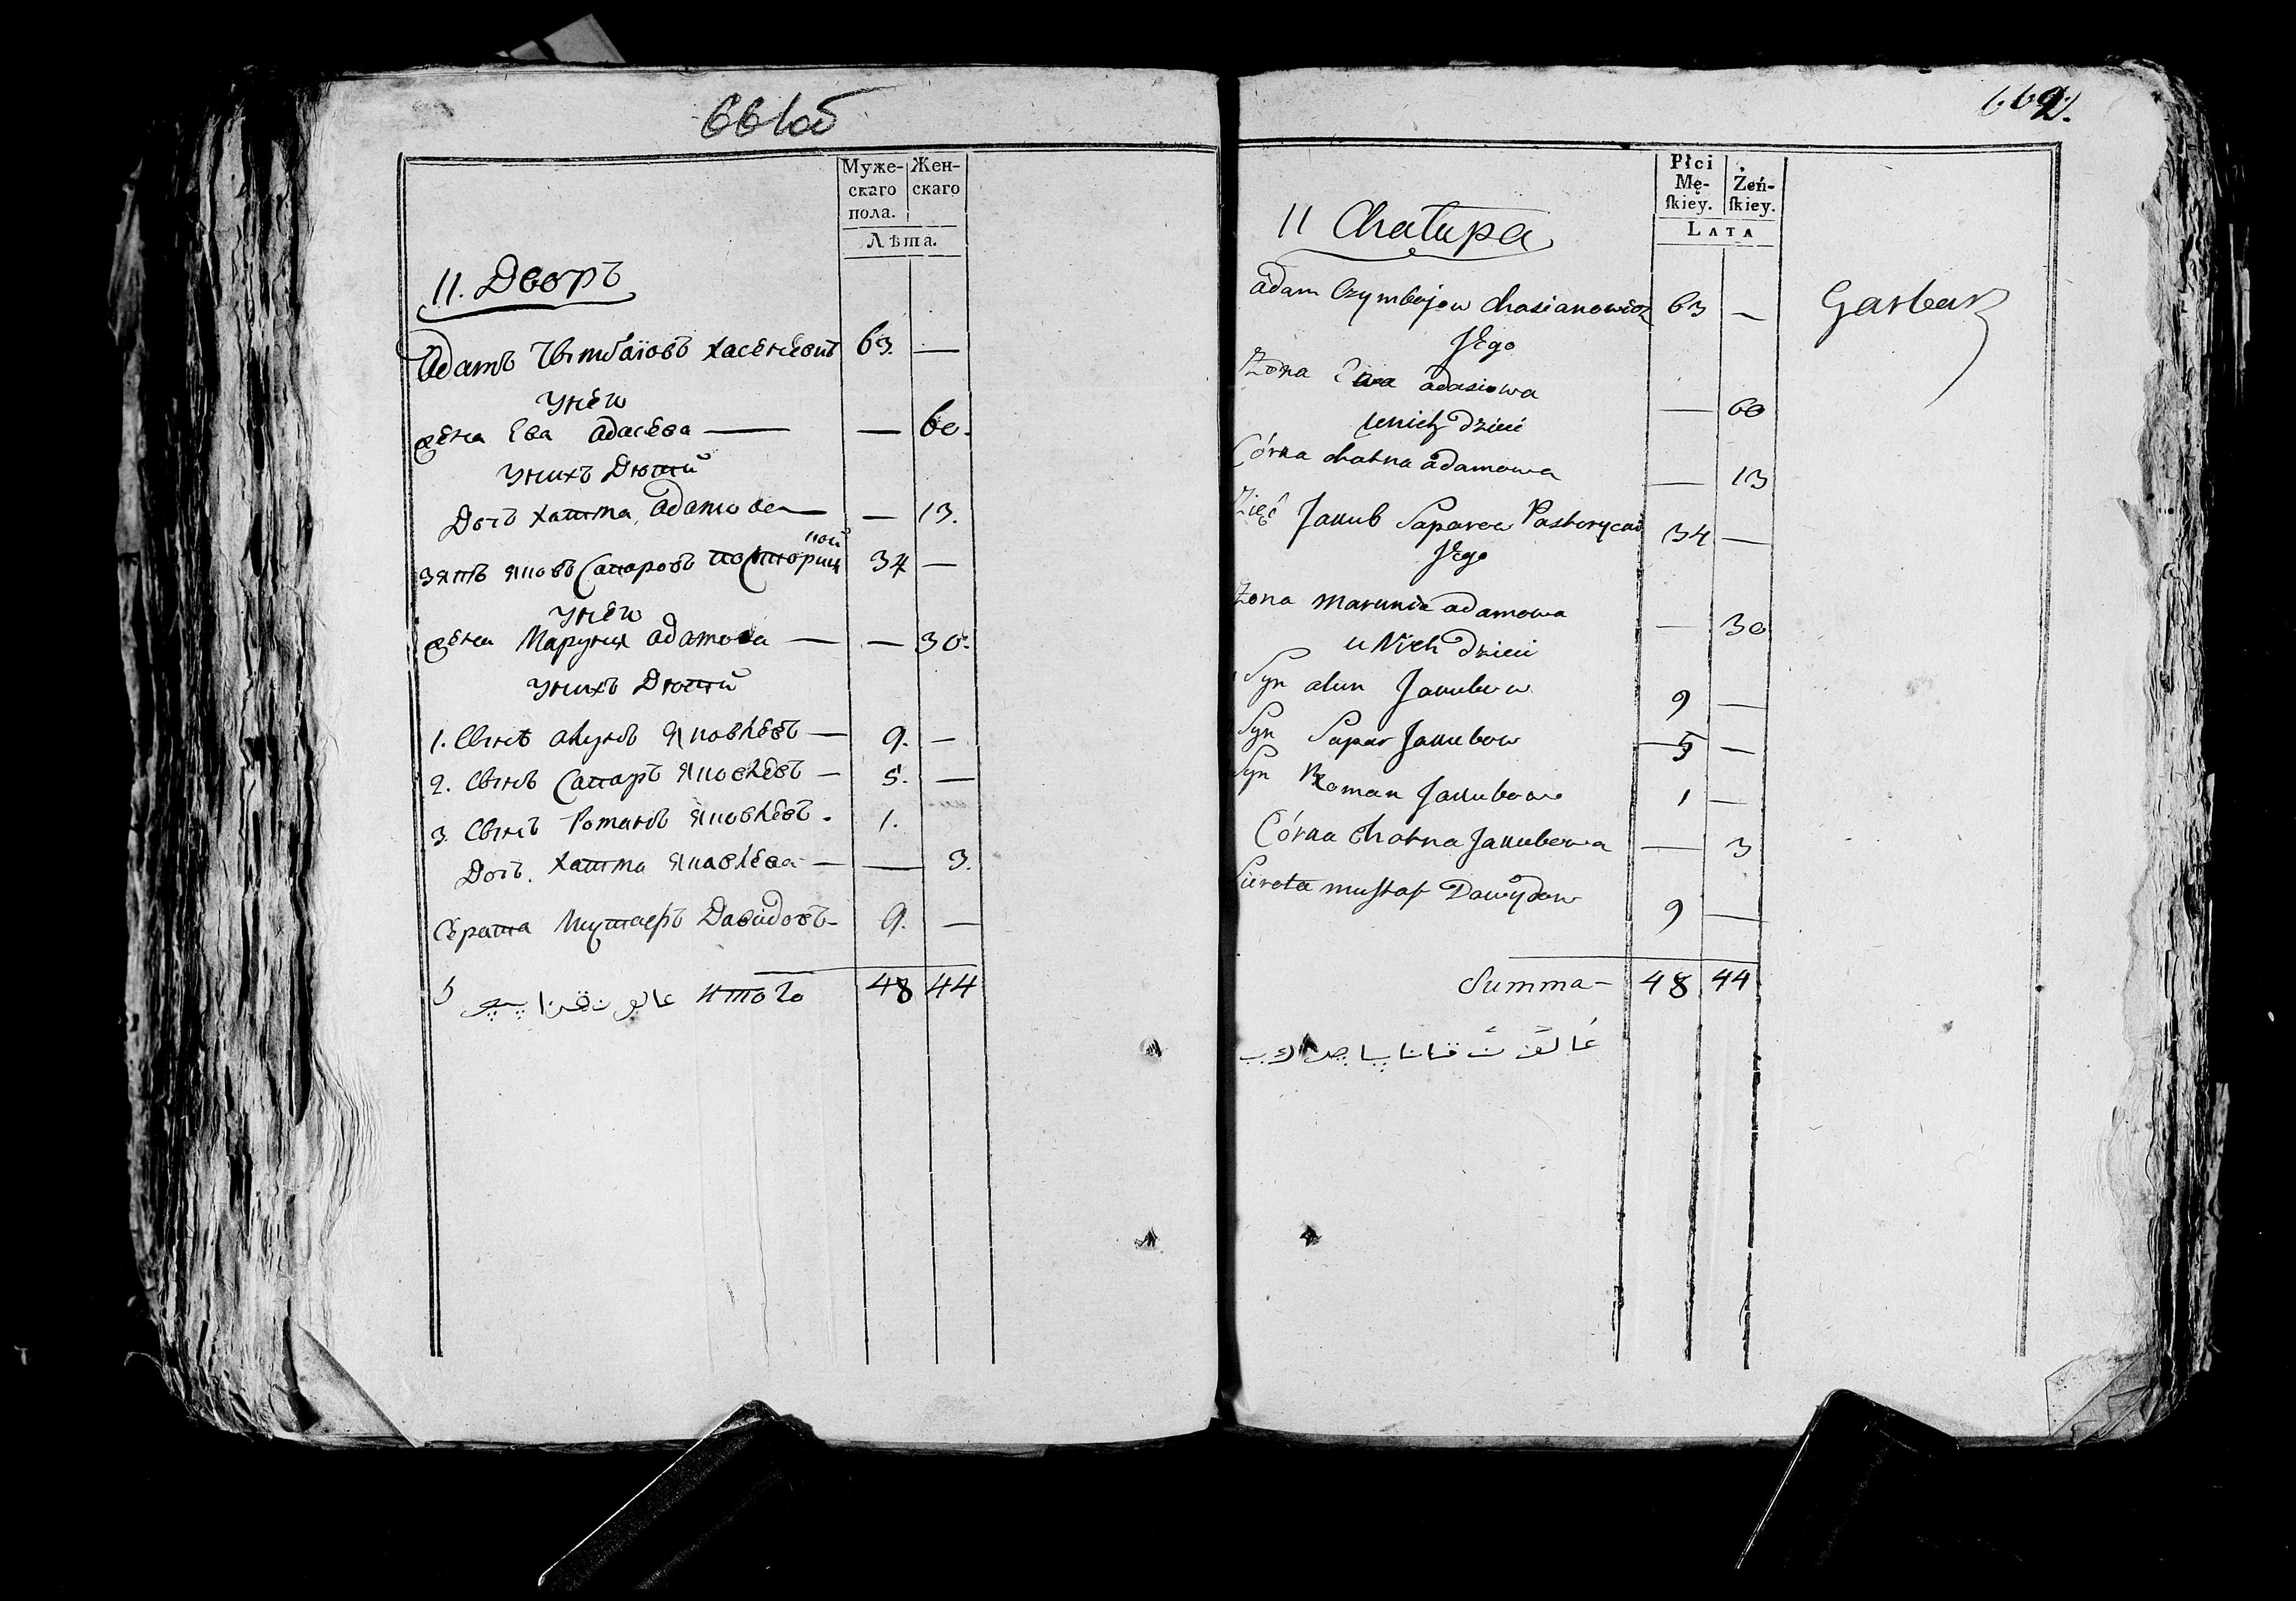 661об
Муже-
скаго
пола.
Жен-
скаго
Лѣта.
11. Дворъ
Адамъ Чымбаіовъ Хасеневичъ 63. —
У нею
жена Ева Адасева — — 60.
У нихъ Детей
Дочь Хатма Адамова — — 13.
зять Яковъ Сапаровъ 34 —
У нею
жена Маруня Адамова — — 30.
У нихъ Детей
1. Сынъ Алунъ Яковлевъ — 9. —
2. Сынъ Сапаръ Яковлевъ — 5. —
3. Сынъ Романъ Яковлевъ. 1.
Дочь. Хатма Яковлева — — 3.
Серота Мустафъ Давидовъ — 9. —
итого 48 44
662.
Płci
Mę-
ſkiey.
Żeń-
ſkiey.
LATA
11 Chałupa
Adam Czymbajow Chasianowicz 63 —
Jego
Żona Ewa Adasiowa — 60
u nich Dzieci
Córka Chatna Adamowa — 13
Zięć Jakub Saparow 34 —
Jego
Żona Marunia Adamowa — 30
u Nich Dzieci
Syn Alun Jakubow 9 —
Syn Sapar Jakubow 5 —
Syn Roman Jakubow 1 —
Córka Chatna Jakubowa — 3
Sierota Mustaf Dawydow 9 —
Summa — 48 44
Garbarz